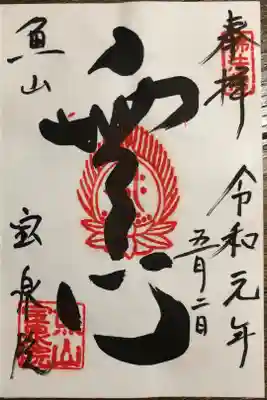 奉拝
令和元年
五月二日
無心
魚山
宝泉院